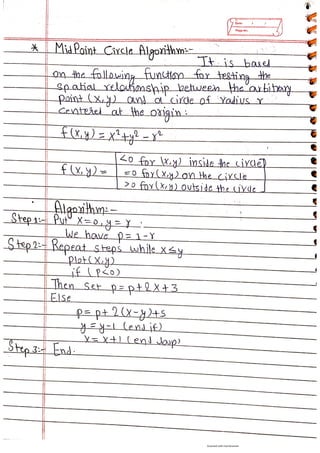 * MidPoint Circle Algorithm:-
It is based
on the following function for testing the
spatial relationship between the arbitrary
point (x,y) and a circle of radius r
centered at the origin:
f(x,y) = x²+y² - r²
f(x,y) = <0 for (x,y) inside the circle
=0 for (x,y) on the circle
>0 for (x,y) outside the circle
Algorithm:-
Step 1:- Put x=0, y=r.
We have p=1-r
Step 2:- Repeat steps while x≤y
Plot(x,y)
if (p<0)
Then set p=p+2x+3
Else
p=p+2(x-y)+5
y=y-1 (end if)
x=x+1 (end loop)
Step 3:- End.